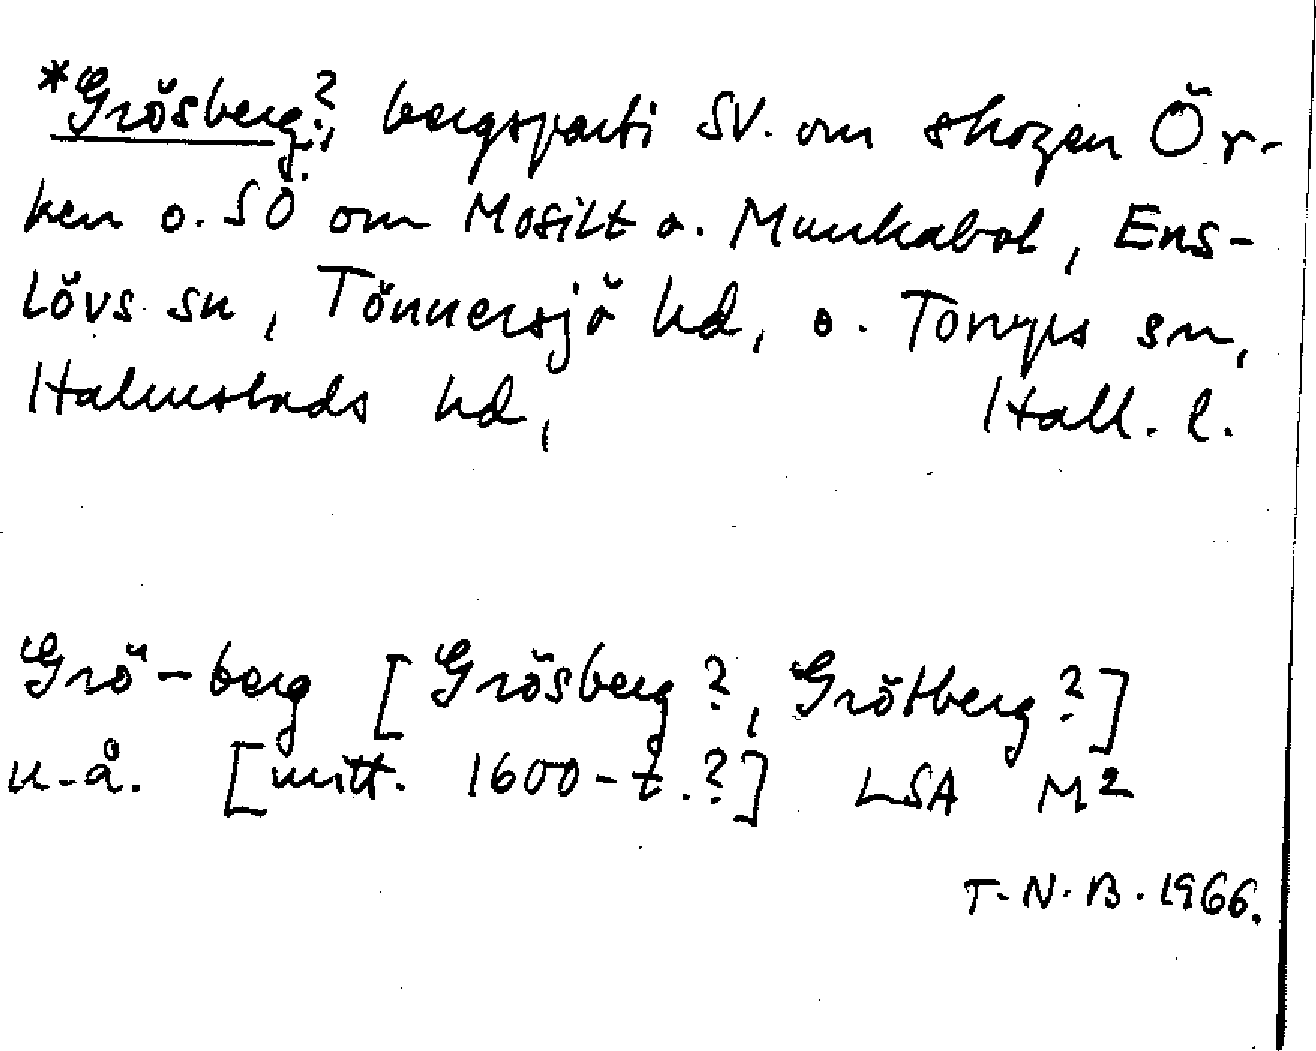 *Grösberg?, bergsparti SV. om skogen Ör-
ken o. SÖ om Mosilt o. Munkabol, Ens-
lövs sn, Tönnersjö hd, o. Torups sn,
Halmstads hd, Hall. l.
Grö-berg [Grösberg?, Grötberg?]
u.å. [mitt. 1600-t.?] LSA M2
T.N.B. 1966.